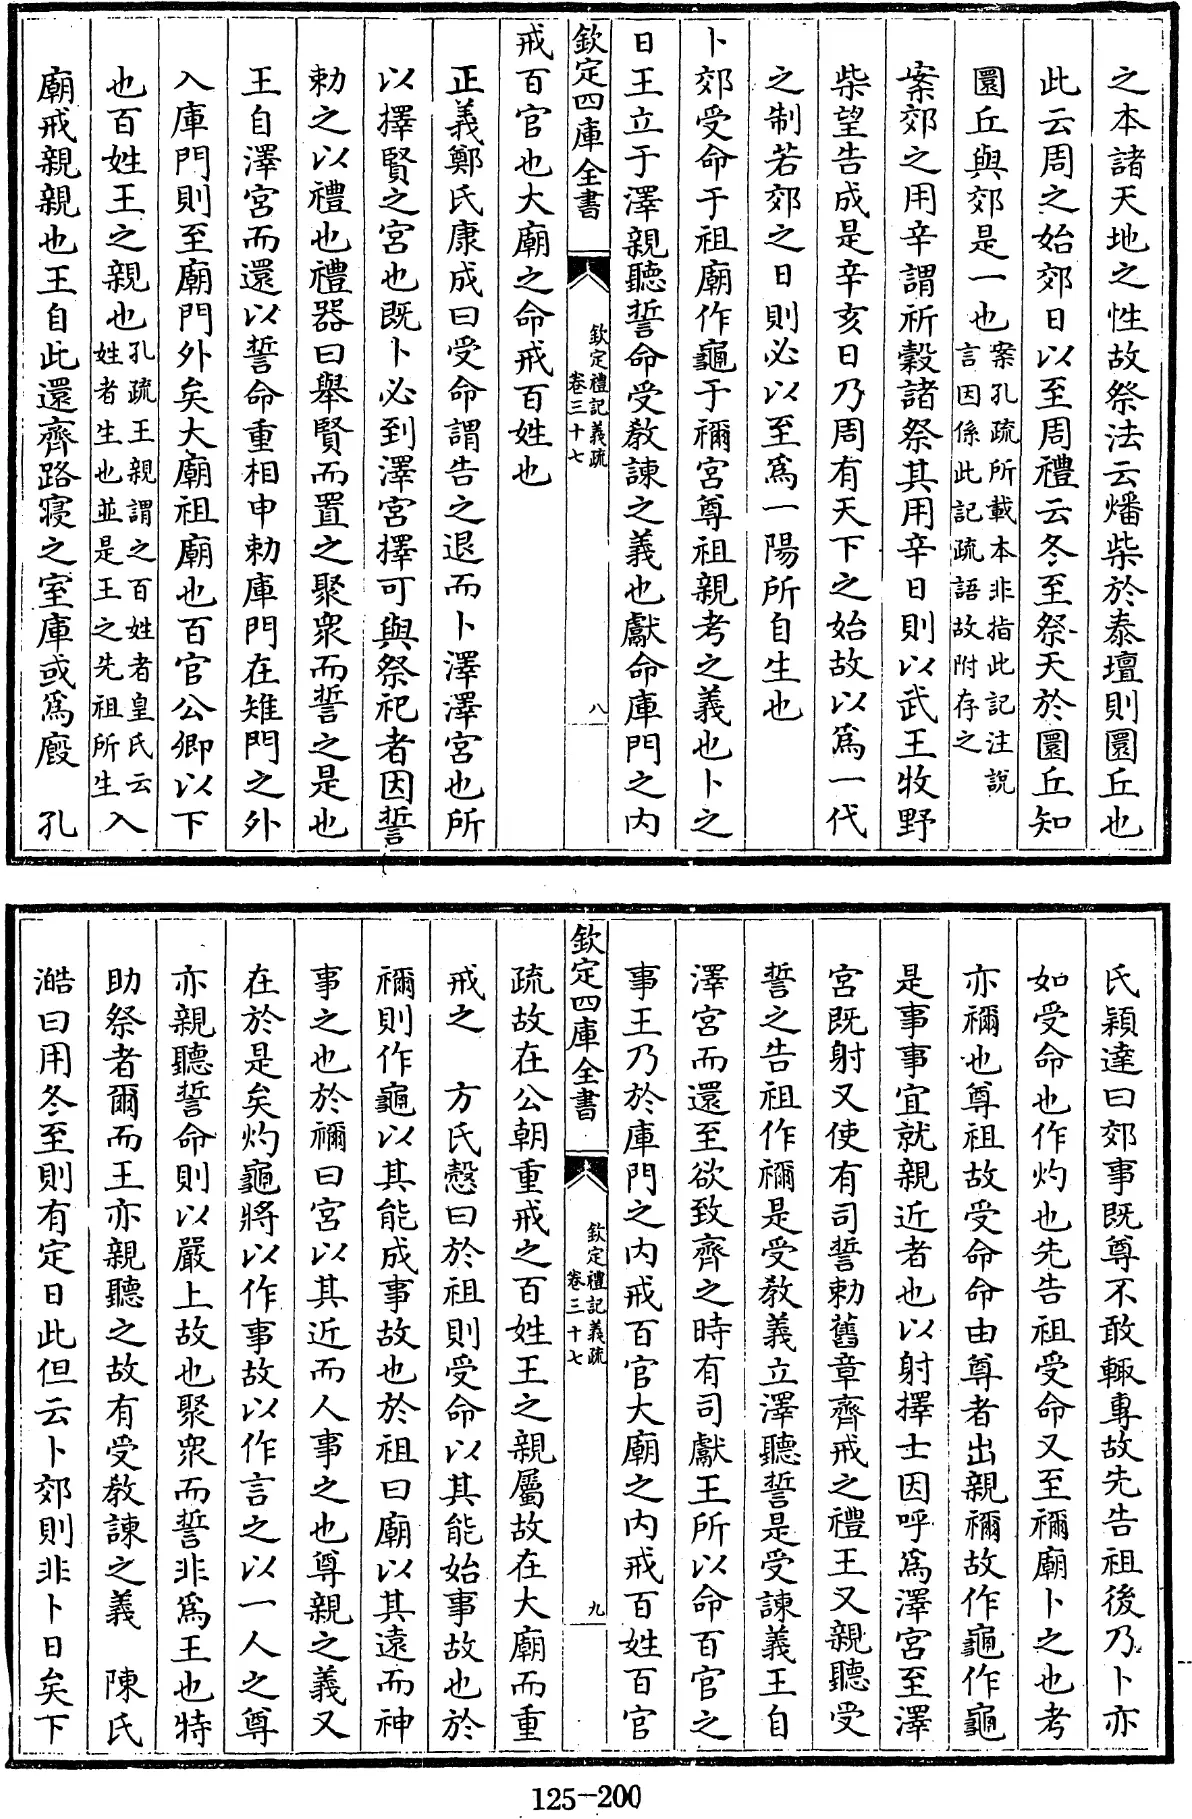 之本諸天地之性故祭法云燔柴於泰壇則圜丘也
此云周之始郊日以至周禮云冬至祭天於圜丘知
圜丘與郊是一也案孔疏所載本非指此記注說言因係此記疏語故附存之
案郊之用辛謂祈穀諸祭其用辛日則以武王牧野
柴望告成是辛亥日乃周有天下之始故以為一代
之制若郊之日則必以至為一陽所自生也
卜郊受命于祖廟作龜于禰宮尊祖親考之義也卜之
日王立于澤親聽誓命受教諫之義也獻命庫門之内
欽定四庫全書
欽定禮記義疏
卷三十七
八
戒百官也大廟之命戒百姓也
正義鄭氏康成曰受命謂告之退而卜澤澤宮也所
以擇賢之宮也既卜必到澤宮擇可與祭祀者因誓
勅之以禮也禮器曰舉賢而置之聚衆而誓之是也
王自澤宮而還以誓命重相申勅庫門在雉門之外
入庫門則至廟門外矣大廟祖廟也百官公卿以下
也百姓王之親也孔疏王親謂之百姓者皇氏云姓者生也並是王之先祖所生入
廟戒親親也王自此還齊路寢之室庫或為廏　孔
氏穎達曰郊事既尊不敢輒專故先告祖後乃卜亦
如受命也作灼也先告祖受命又至禰廟卜之也考
亦禰也尊祖故受命命由尊者出親禰故作龜作龜
是事事宜就親近者也以射擇士因呼為澤宮至澤
宮既射又使有司誓勅舊章齊戒之禮王又親聽受
誓之告祖作禰是受教義立澤聽誓是受諫義王自
澤宮而還至欲致齊之時有司獻王所以命百官之
事王乃於庫門之内戒百官大廟之内戒百姓百官
欽定四庫全書
欽定禮記義疏
卷三十七
九
疏故在公朝重戒之百姓王之親屬故在大廟而重
戒之　方氏慤曰於祖則受命以其能始事故也於
禰則作龜以其能成事故也於祖曰廟以其遠而神
事之也於禰曰宮以其近而人事之也尊親之義又
在於是矣灼龜將以作事故以作言之以一人之尊
亦親聽誓命則以嚴上故也聚衆而誓非為王也特
助祭者爾而王亦親聽之故有受教諫之義　陳氏
澔曰用冬至則有定日此但云卜郊則非卜日矣下
125-200